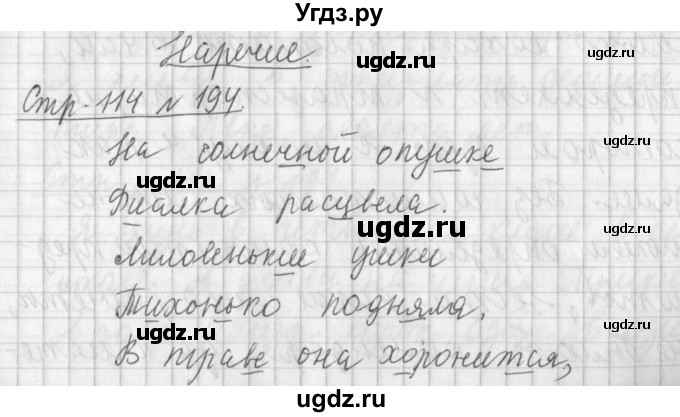 Угдз.ру
ugdz.ru ugdz.ru
Наречие.
ugdz.ru
Стр. 114 № 194.
ugdz.ru
На солнечной опушке
ugdz.ru
Фиалка расцвела.
ugdz.ru
Лиловенькие ушки
ugdz.ru
Тихонько подняла.
ugdz.ru ugdz.ru
В траве она хоронится,
ugdz.ru